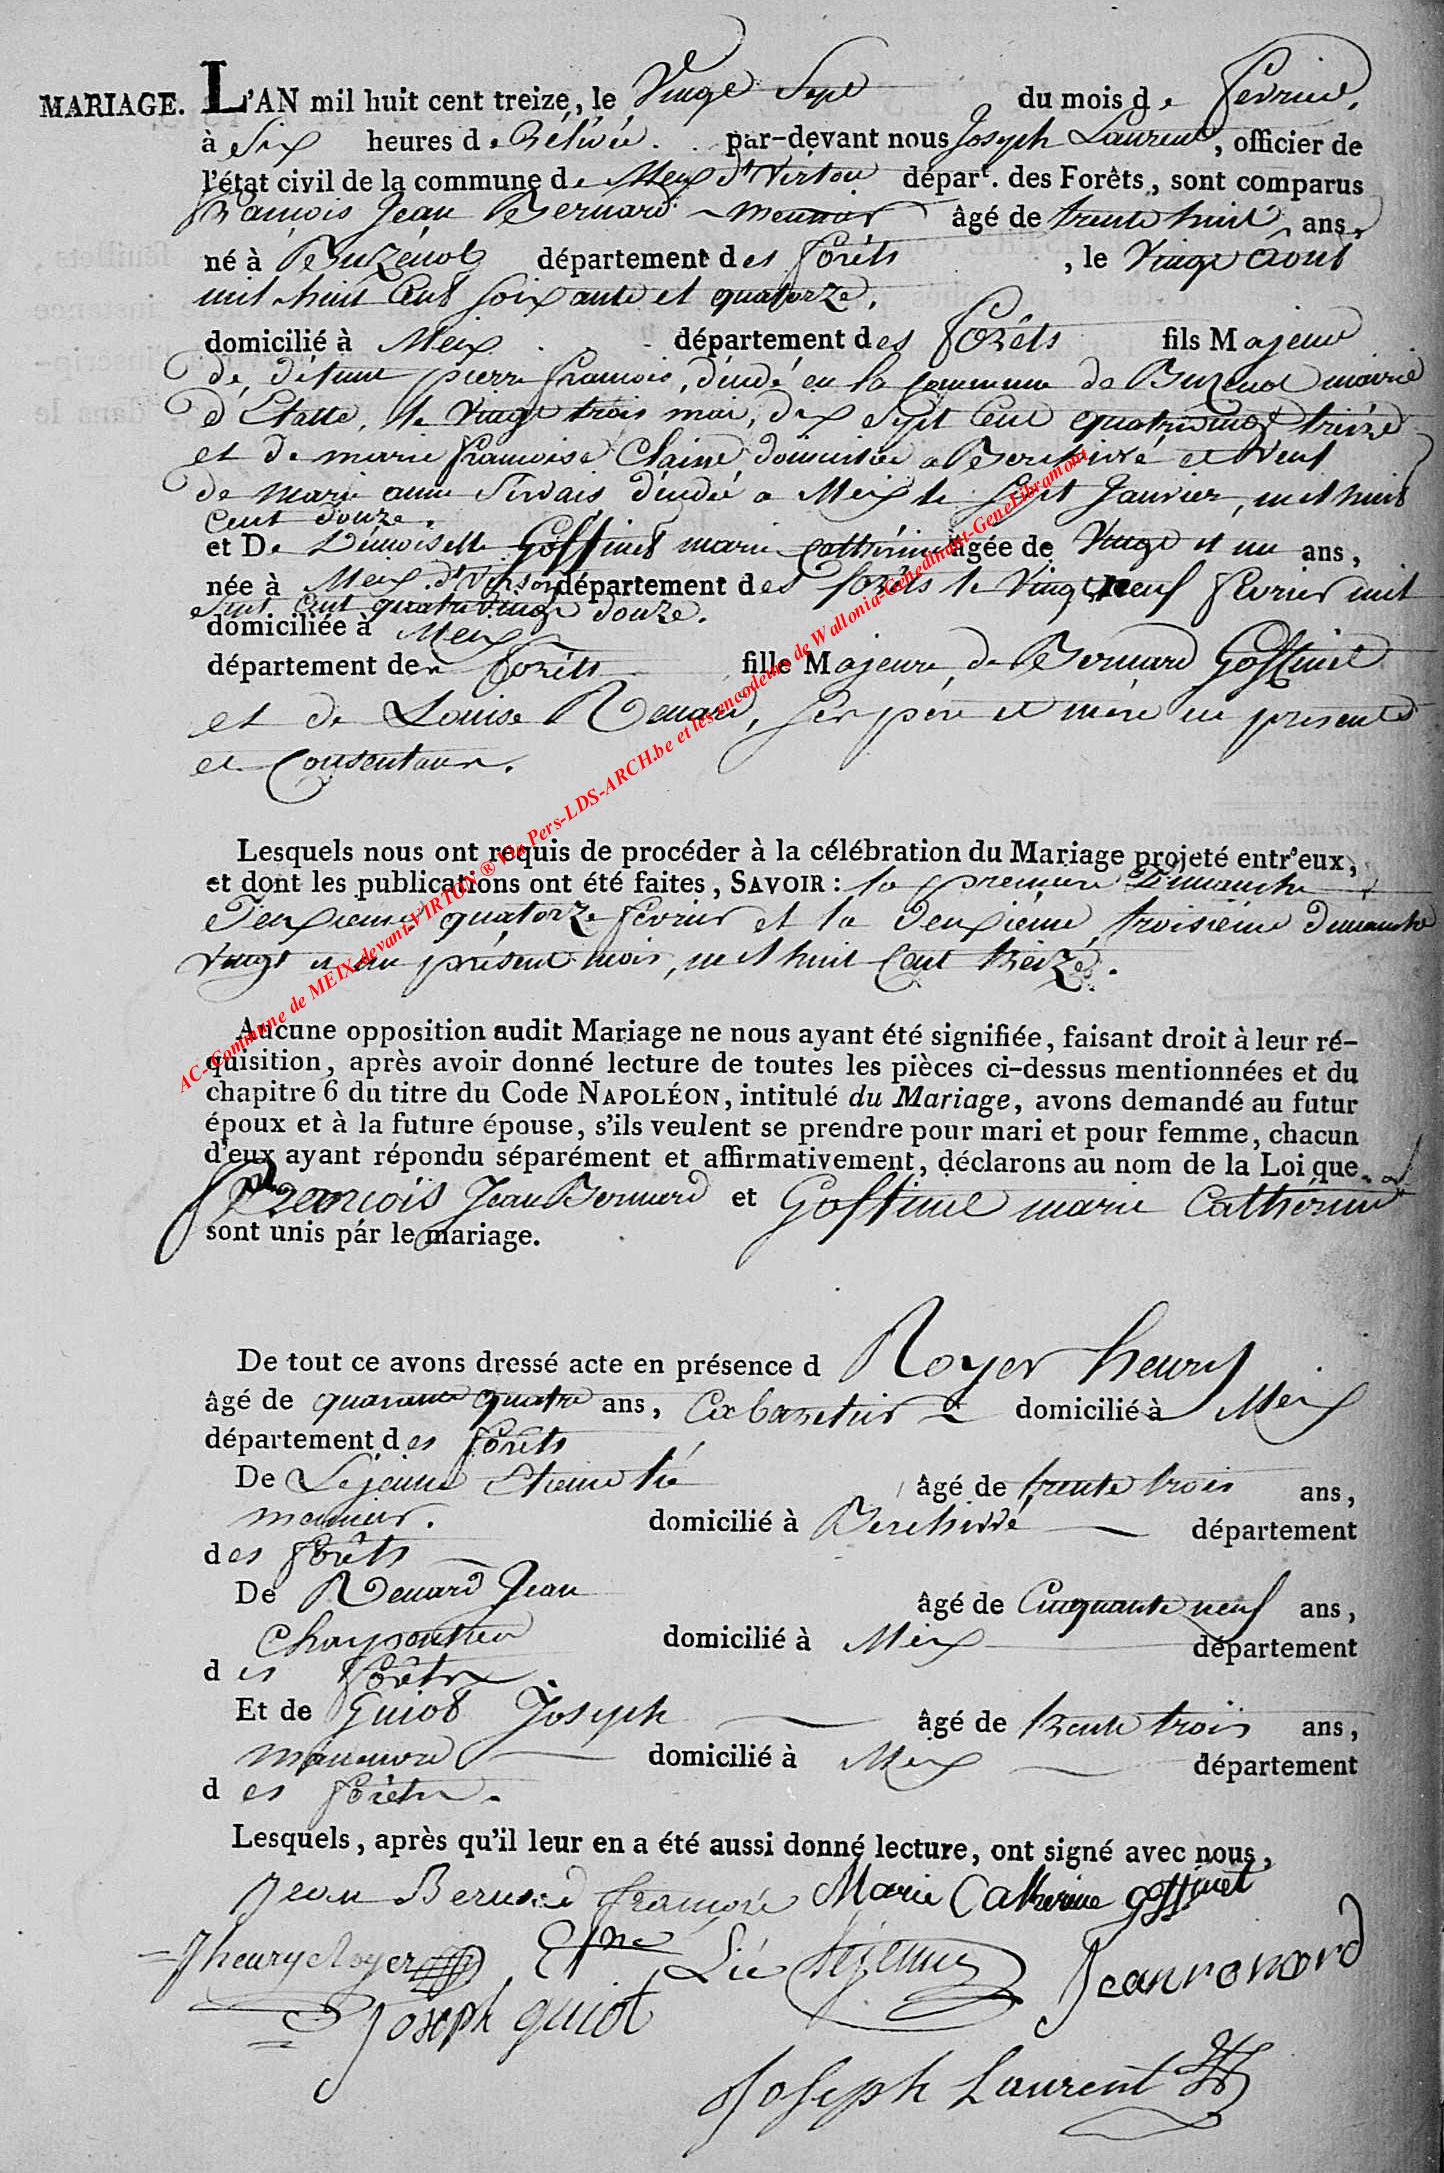 MARIAGE. L'AN mil huit cent treize, le Vingt Sept du mois de fevrier,
à Six heures de Rélivée. par-devant nous Joseph Laurent, officier de
l'état civil de la commune de Meix dt Virton départ. des Forêts, sont comparus
françois Jean Bernard âgé de trente huit ans,
né à Buzenol département des forêts, le Vingt Août
mil huit Cent soixante et quatorze.
domicilié à Meix département des forêts fils Majeur
de défunt pierre françois, décédé en la commune de Buzenol mairie
d'Etalle, le Vingt trois mai, dix Sept Cent quatrevingt treize
et de marie françoise Claire, domiciliée a Berchivé et Veuf
de marie anne Servais décédée a Meix le Sept Janvier, mil huit
Cent douze.
et De Démoiselle Goffinet marie Cathérine âgée de Vingt et un ans,
née à Meix dt Virton département des forêts le Vingt neuf fevrier mil
Sept Cent quatre Vingt douze.
domiciliée à Meix
département des forêts fille Majeure de Bernard Goffinet
et de Louise Renard, ses père et mère ici présents
et Consentant.
Lesquels nous ont requis de procéder à la célébration du Mariage projeté entr'eux,
et dont les publications ont été faites, SAVOIR : la premiere Dimanche
Deuxieme quatorze fevrier et la Deuxième, troisième dimanche
Vingt et un présent mois, mil huit Cent treize.
Aucune opposition audit Mariage ne nous ayant été signifiée, faisant droit à leur ré-
quisition, après avoir donné lecture de toutes les pièces ci-dessus mentionnées et du
chapitre 6 du titre du Code NAPOLÉON, intitulé du Mariage, avons demandé au futur
époux et à la future épouse, s'ils veulent se prendre pour mari et pour femme, chacun
d'eux ayant répondu séparément et affirmativement, déclarons au nom de la Loi que
François Jean Bernard et Goffinet marie Cathérine
sont unis par le mariage.
De tout ce avons dressé acte en présence d Royer henry
âgé de quarante quatre ans, Cabaretier domicilié à Meix
département des forêts
De Lejeune Etienne lié âgé de trente trois ans,
domicilié à Berchivé département
des forêts
De Renard Jean âgé de Cinquante neuf ans,
Charpentier domicilié à Meix département
des forêts
Et de Guiot Joseph âgé de trente trois ans,
manouvre domicilié à Meix département
des forêts.
Lesquels, après qu'il leur en a été aussi donné lecture, ont signé avec nous,
Jean Bernard françois Marie Catherine goffinet
J henry Royer Etne Lié Lejeune Jean renard
Joseph guiot
Joseph Laurent
AC-Commune de MEIX-devant-VIRTON ® Via Pers-LDS-ARCH.be et les encodeurs de Wallonia-Genedinant-GeneLibramont